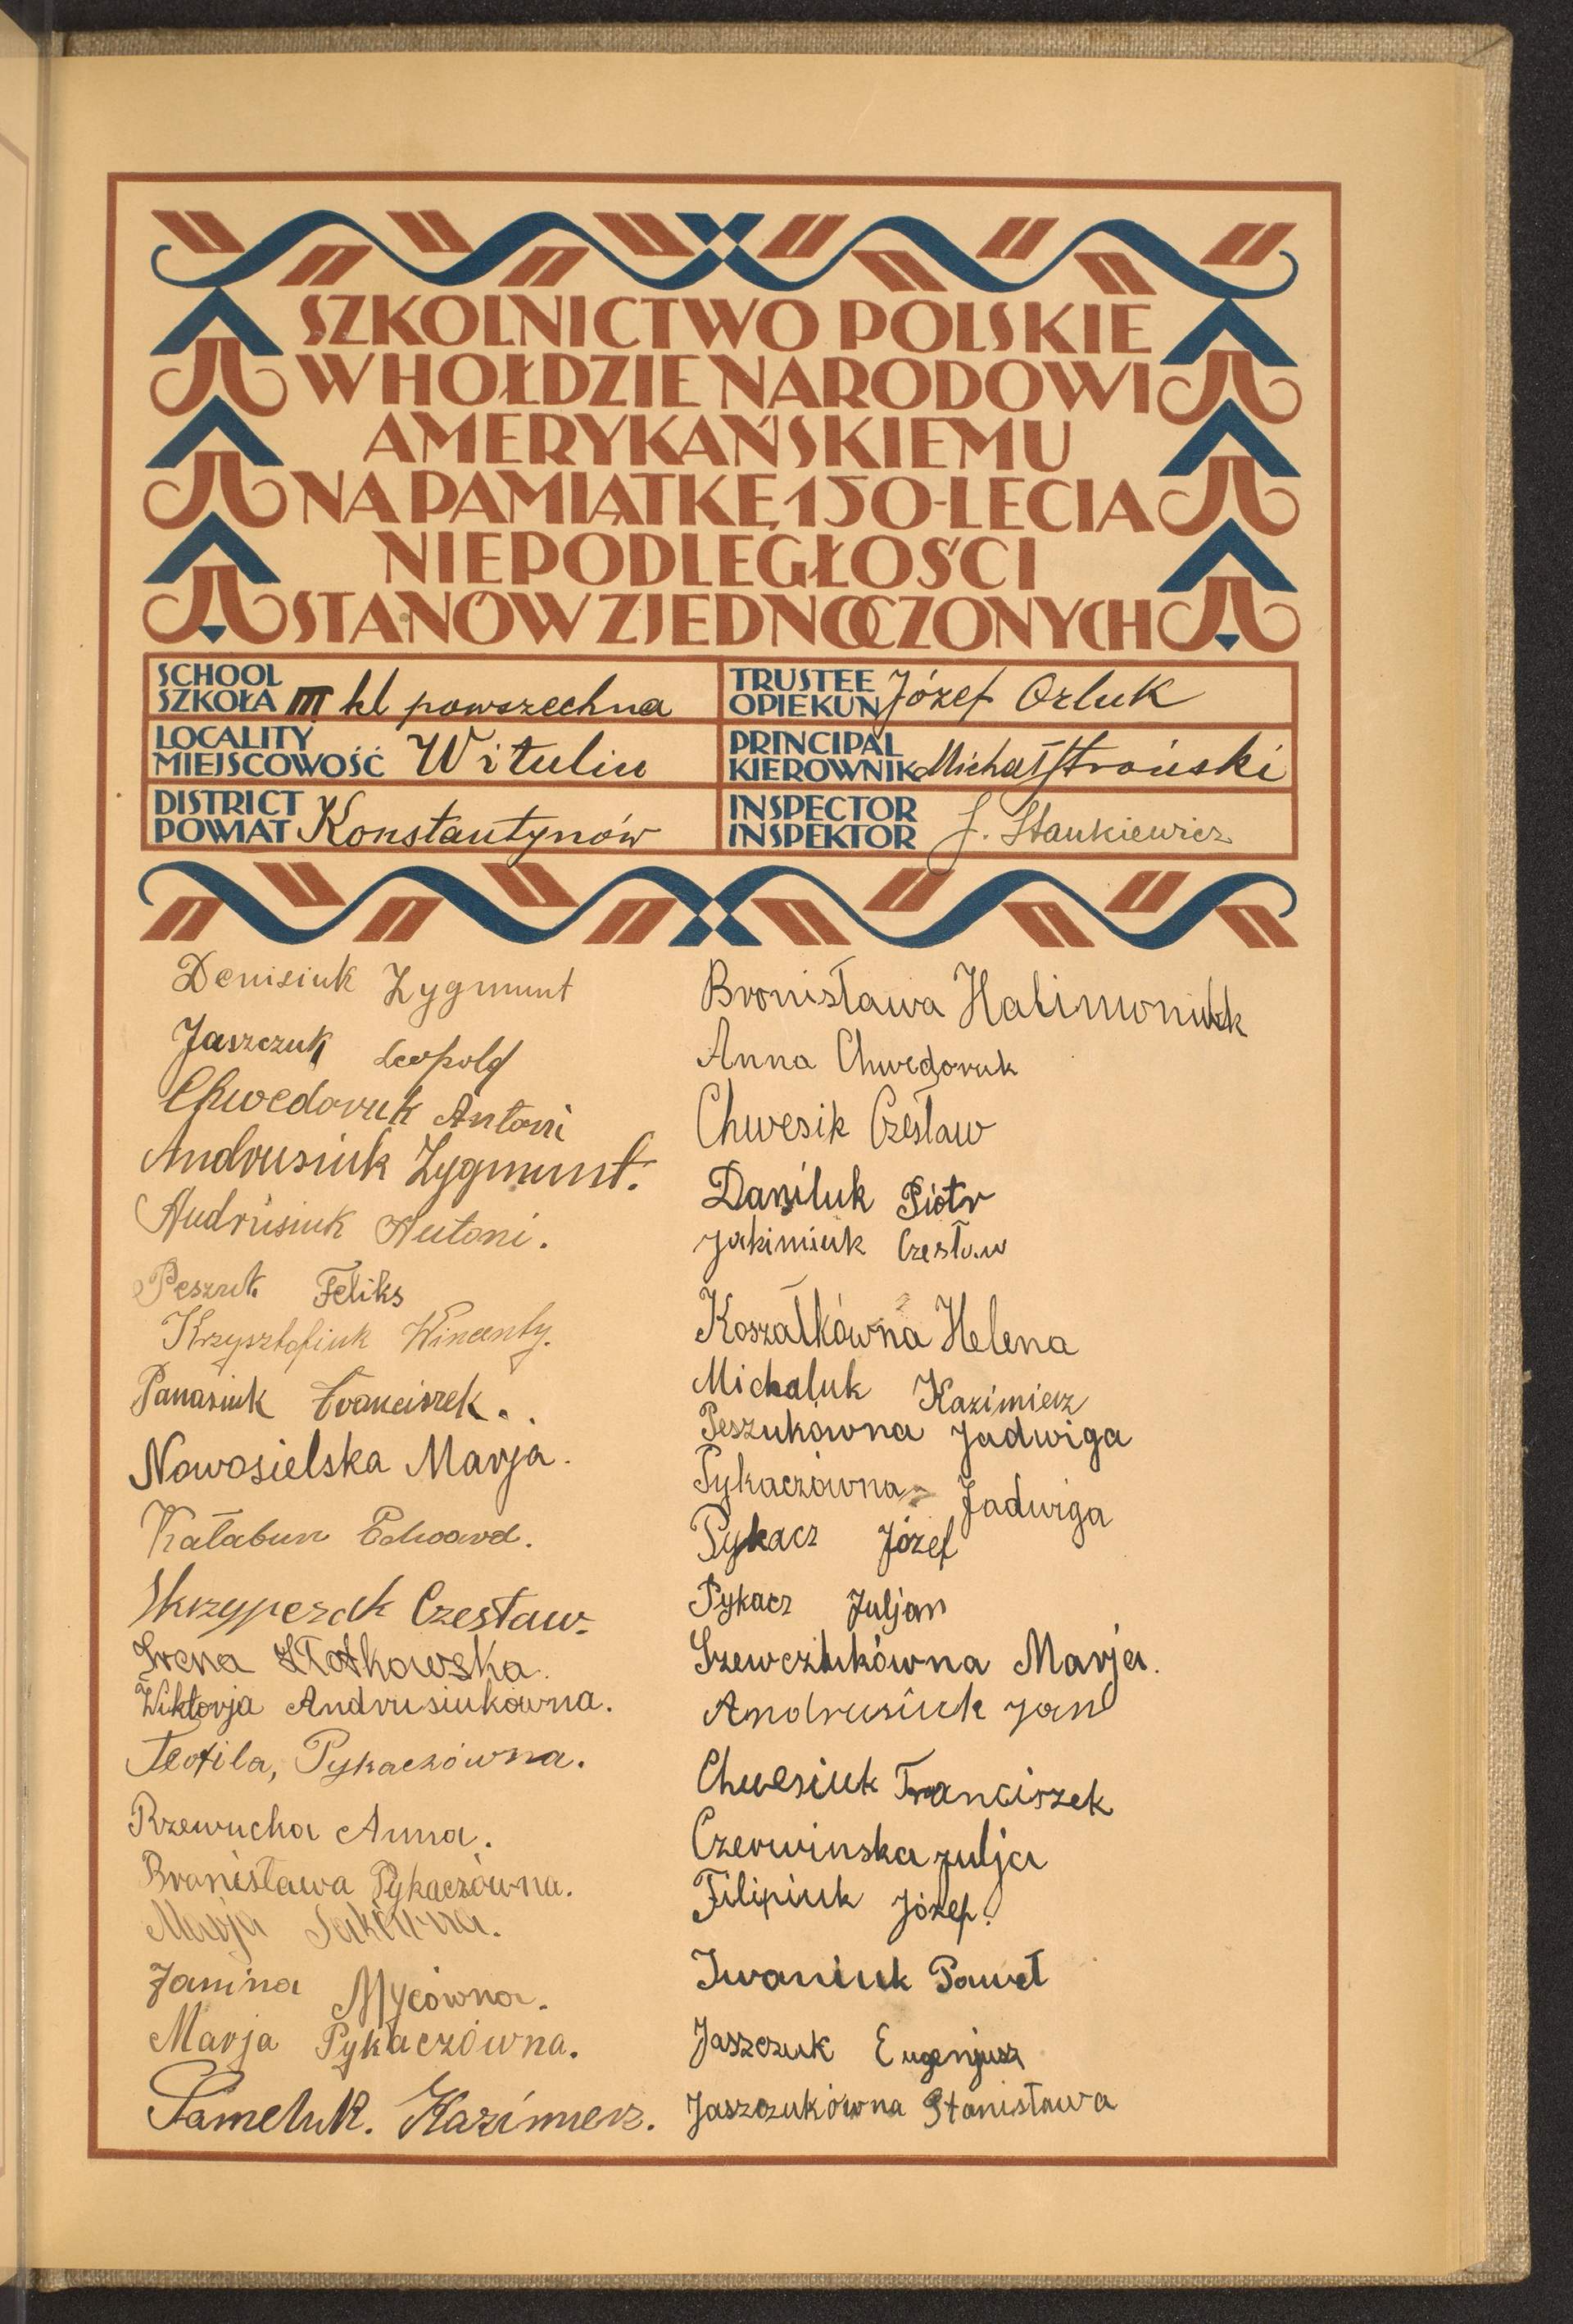 SZKOLNICTWO POLSKIE
W HOŁDZIE NARODOWI
AMERYKAŃSKIEMU
NA PAMIĄTKĘ 150-LECIA
NIEPODLEGŁOŚCI
STANÓW ZJEDNOCZONYCH
SCHOOL
SZKOŁA III kl powszechna
LOCALITY
MIEJSCOWOŚĆ Witulin
DISTRICT
POWIAT Konstantynów
TRUSTEE
OPIEKUN Józef Orluk
PRINCIPAL
KIEROWNIK Michał Stroński
INSPECTOR
INSPEKTOR J. Stankiewicz
Denisiuk Zygmunt
Jaszczuk Leopold
Chwedoruk Antoni
Andrusiuk Zygmunt.
Andrusiuk Antoni.
Peszuk Feliks
Krzysztofiuk Wincenty.
Panasiuk Franciszek..
Nowosielska Marja.
Kałabun Edward.
Skrzypczak Czesław.
Irena Złotkowska.
Wiktorja Andrusiukówna.
Teofila, Pykaczówna.
Rzewucka Anna.
Bronisława Pykaczówna.
Marja
Janina Mycówna.
Marja Pykaczówna.
Sameluk. Kazimierz.
Bronisława Halimoniuk
Anna Chwedoruk
Chwesik Czesław
Daniluk Piotr
Jakimiuk Czesław
Koszałkówna Helena
Michaluk Kazimierz
Peszukówna Jadwiga
Pykaczówna Jadwiga
Pykacz Józef
Pykacz Juljan
Szewczukówna Marja.
Andrusiuk Jan
Chwesiuk Franciszek
Czerwinska Julja
Filipiuk Józef.
Iwaniuk Paweł
Jaszczuk Eugenjusz
Jaszczukówna Stanisława